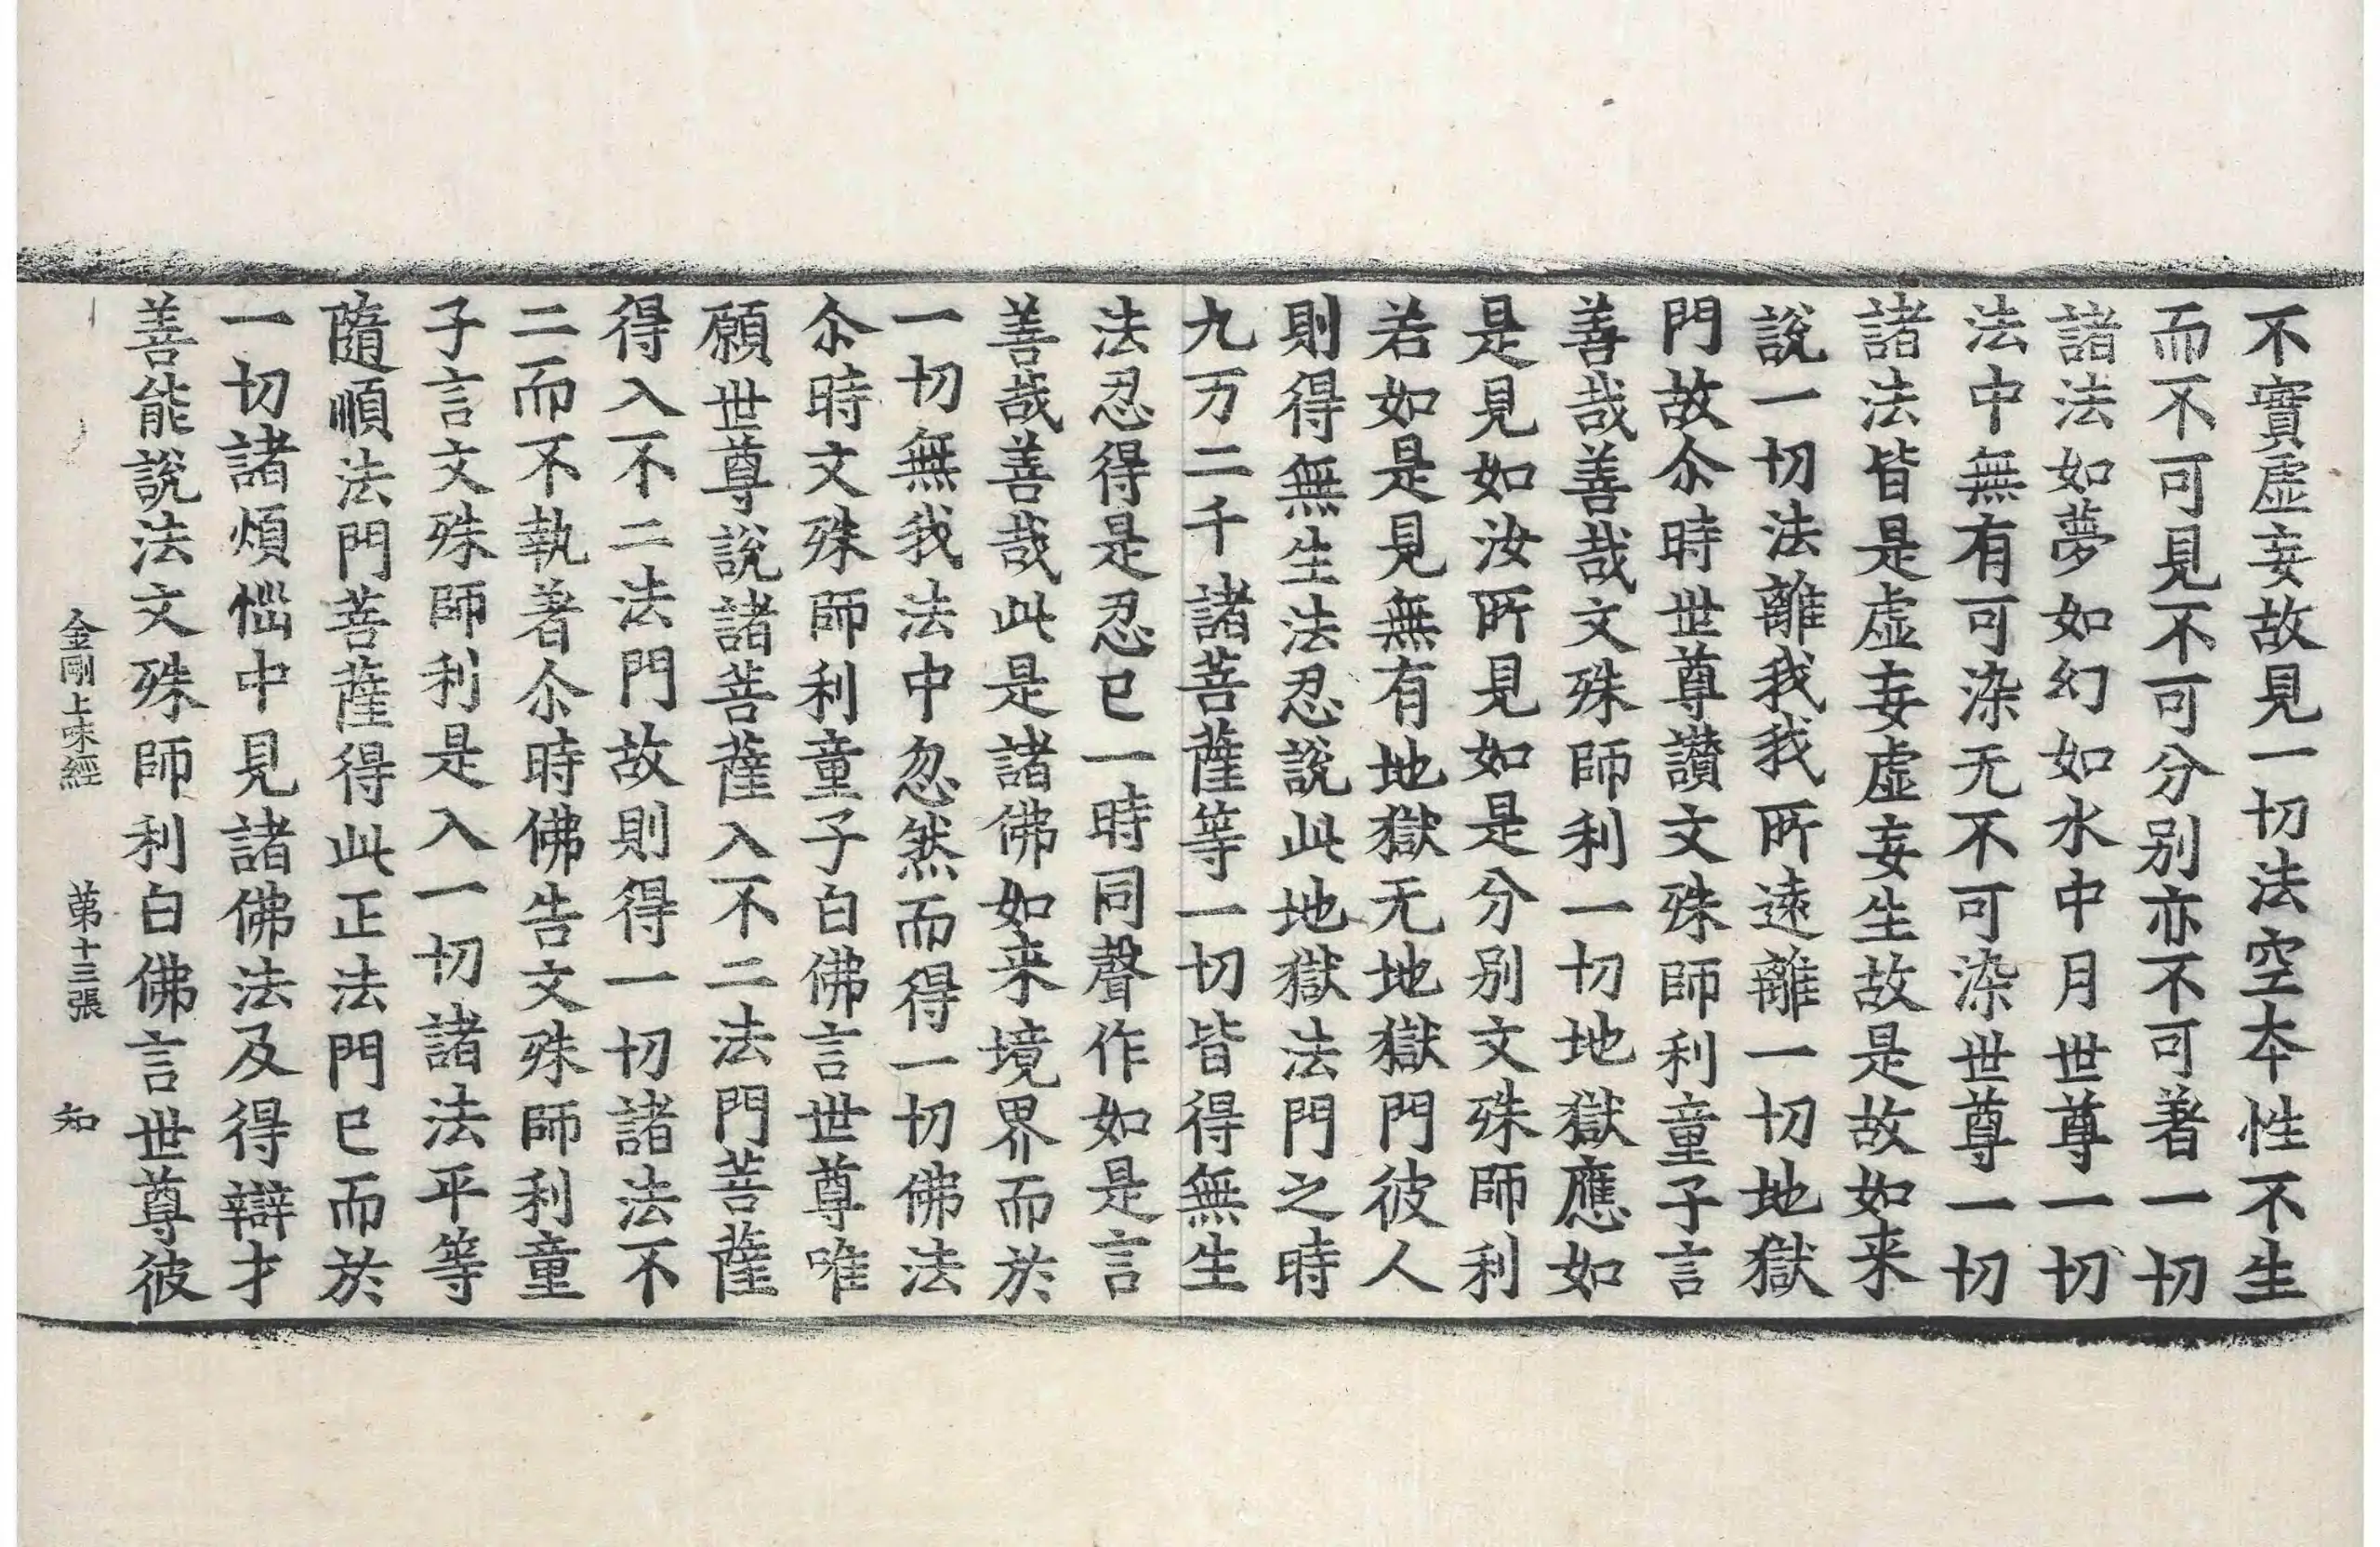 不實虛妄故見一切法空本性不生
而不可見不可分别亦不可著一切
諸法如夢如幻如水中月世尊一切
法中無有可染无不可染世尊一切
諸法皆是虛妄虛妄生故是故如来
說一切法離我我所遠離一切地獄
門故尒時世尊讚文殊師利童子言
善哉善哉文殊師利一切地獄應如
是見如汝所見如是分别文殊師利
若如是見無有地獄无地獄門彼人
則得無生法忍說此地獄法門之時
九万二千諸菩薩等一切皆得無生
法忍得是忍已一時同聲作如是言
善哉善哉此是諸佛如来境界而於
一切無我法中忽然而得一切佛法
尒時文殊師利童子白佛言世尊唯
願世尊說諸菩薩入不二法門菩薩
得入不二法門故則得一切諸法不
二而不執著尒時佛告文殊師利童
子言文殊師利是入一切諸法平等
隨順法門菩薩得此正法門已而於
一切諸煩惱中見諸佛法及得辯才
善能說法文殊師利白佛言世尊彼
金剛上味經 第十三張 知